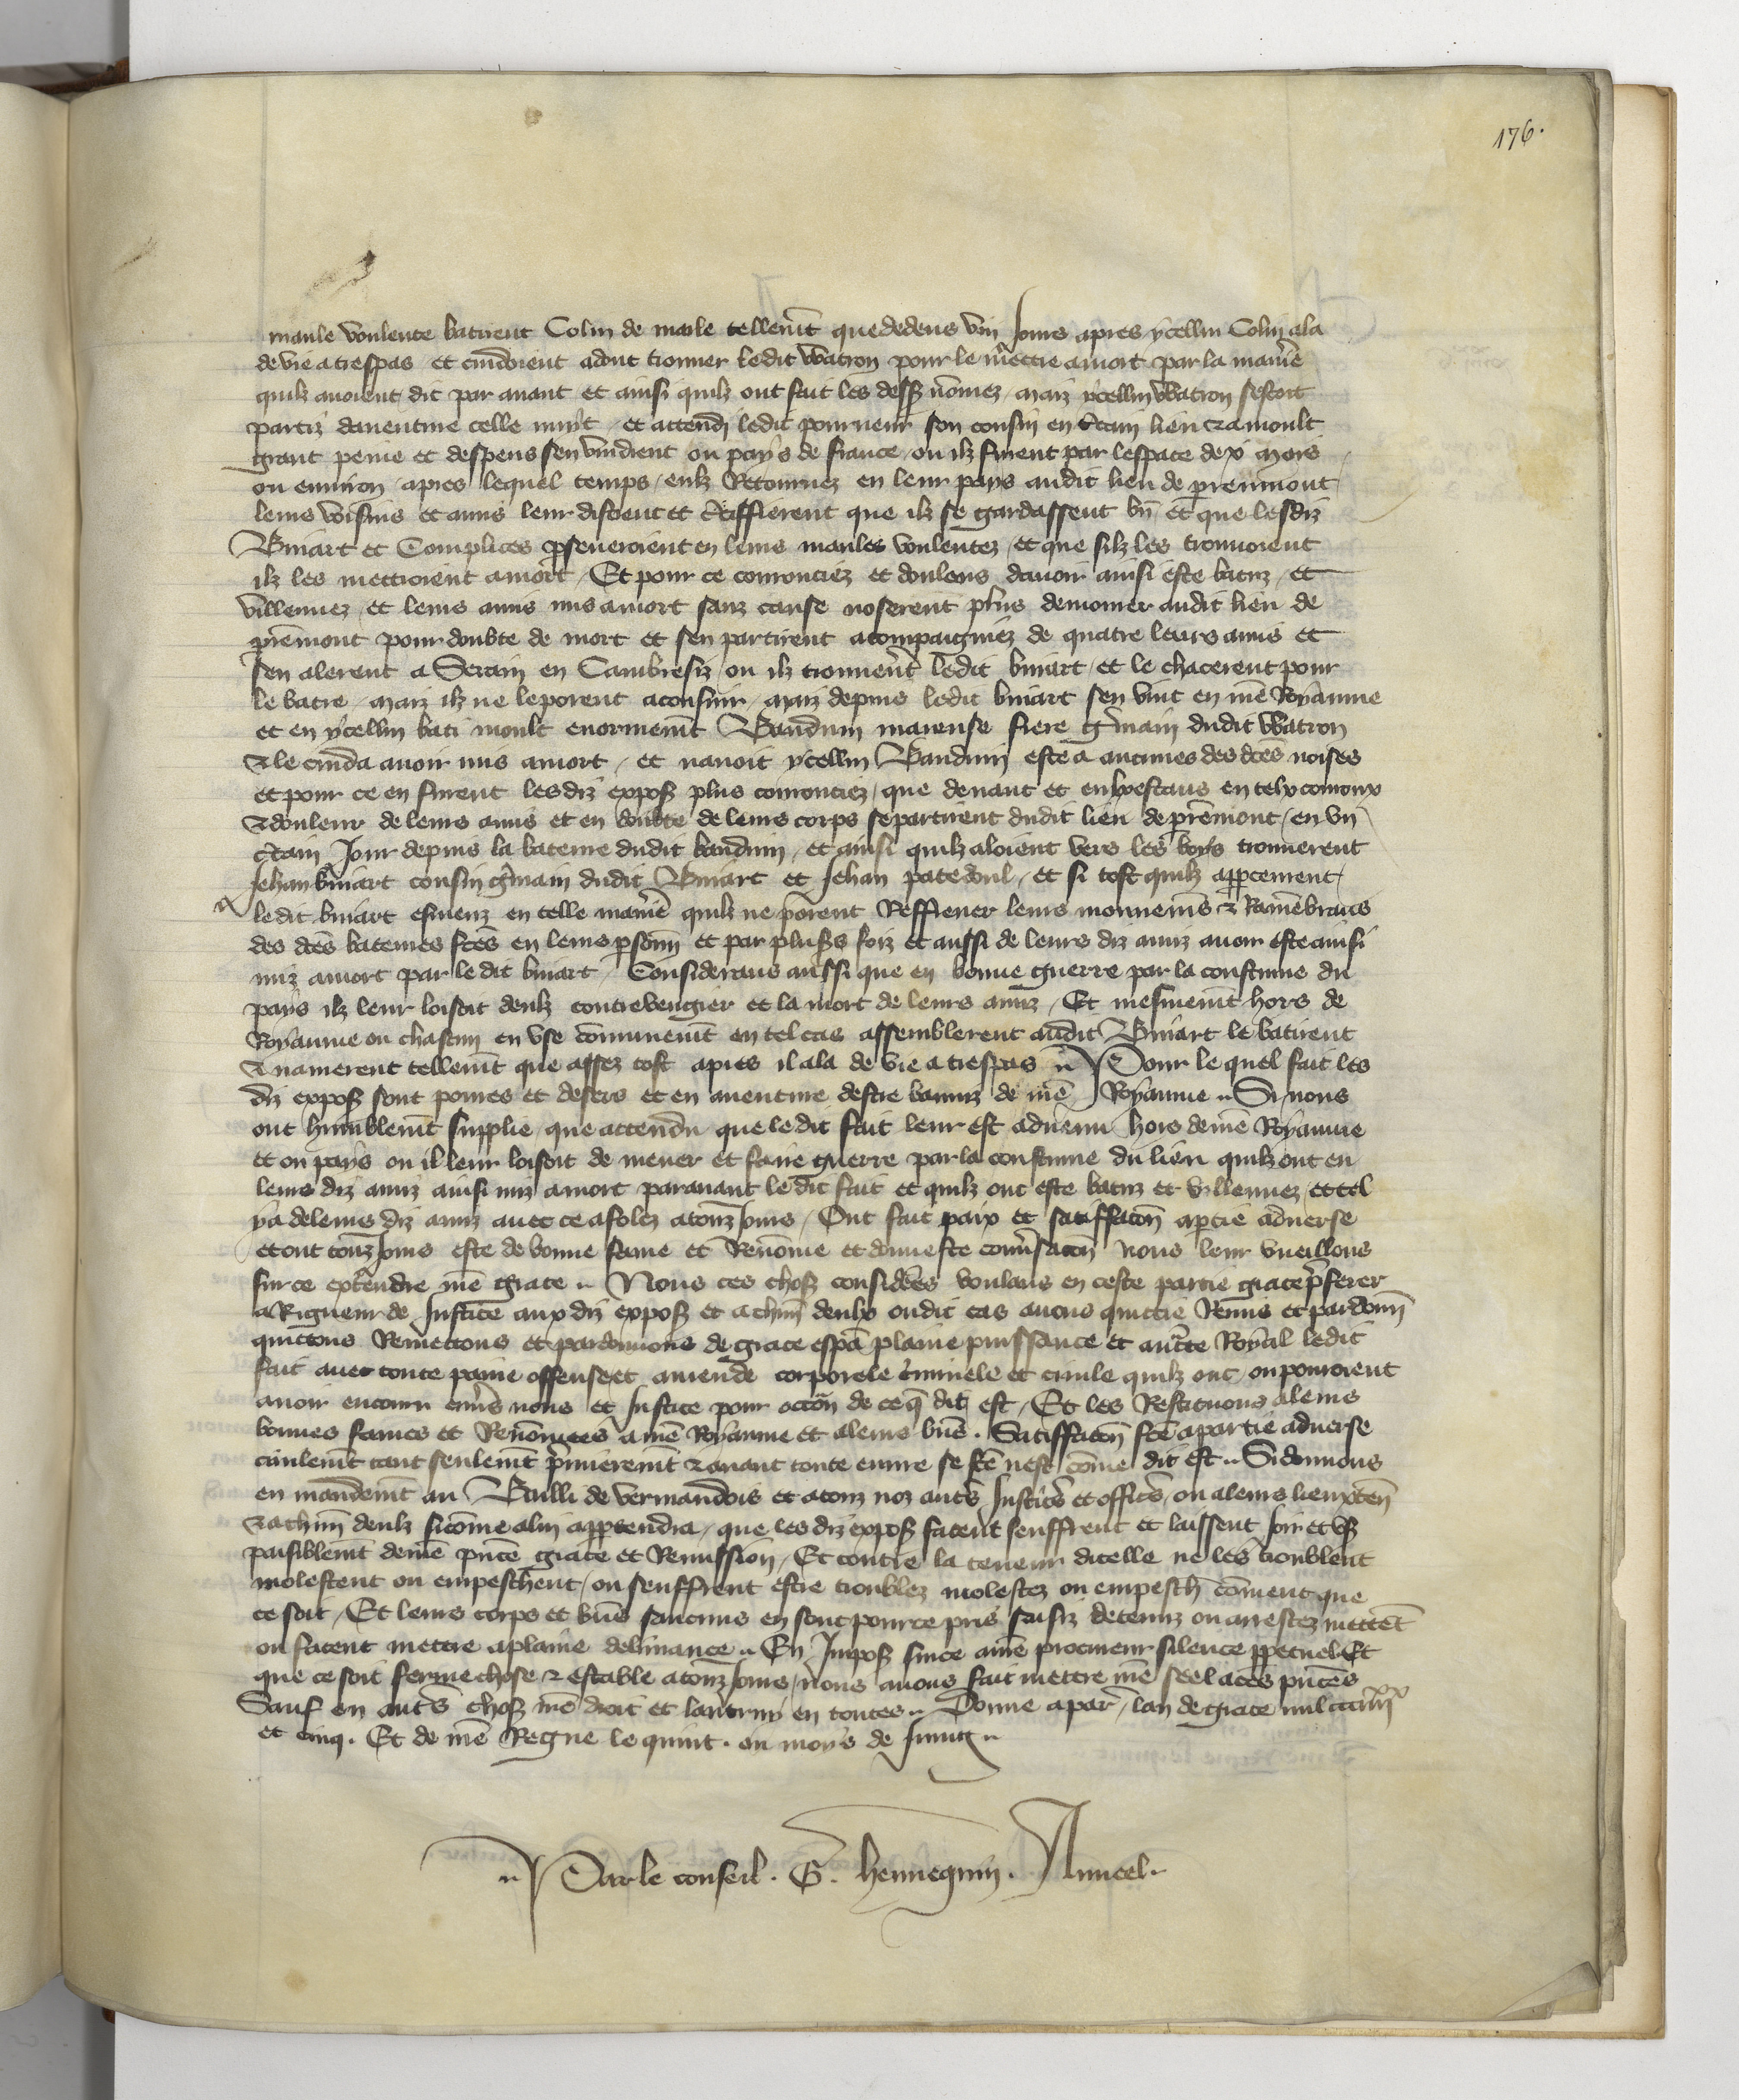 176.
maule voulente batirent Colin de marle tellemt que dedens viij jours apres ycellui Colin ala
de vie a trespas et cuidoient adont trouver ledit Watron pour le mettre a mort par la maniē
quilz avoient dit par avant et ainsi quilz ont fait les dess nōmez / maiz ycellui Watron sestoit
partiz daventure celle nuyt et attendi ledit pourveur son cousin en ctain lieu & a moult
grant peine et despens sen vindrent ou pays de france ou ilz furent par lespace de x moys
ou environ / apres lequel temps / eulz Retournez en leur pays audit lieu de premont
leurs voisins et amis leur disoient et ctiffierent que ilz se gardassent bn et que lesdiz
Briart et Complices pseveroient en leurs maules voulentez / et que silz les trouvoient
ilz les mettroient a mort / Et pour ce courouciez et doulens davoir ainsi este batuz / et
villennez / et leurs amis mis a mort sanz cause noserent plus demourer audit lieu de
premont pour doubte de mort et sen partirent acompaigniez de quatre leurs amis et
sen alerent a Serain en Cambresiz / ou ilz trouvert ledit briart / et le chacerent pour
le batre / maiz ilz ne le porent aconsuir / maiz depuis ledit briart sen vint en nrē Royaume
et en ycellui bati moult enormemt Bauduin marense frere gmain dudit Watron
& le cuida avoir mis a mort / et navoit ycellui Bauduin este a aucunes des dces noises
et pour ce en furent lesdiz expos plus courouciez / que devant et eulx estans en telx courroux
& douleur de leurs amis et en doubte de leurs corps se partirent dudit lieu de premont / en un
ctain Jour depuis la bateure dudit bauduin / et ainsi quilz aloient vers les boys trouverent
Jehan briart cousin gmain dudit Briart et Jehan patedoul / et si tost quilz appceurent
ledit briart esmeuz en telle maniē quilz ne porent Reffrener leurs mouvemens & Ramēbrans
des dces bateures fces en leurs psonn et par plusrs foiz et aussi de leurs diz amiz avoir este ainsi
miz a mort par le dit briart / Considerans aussi que en bonne guerre par la coustume du
pays ilz leur loisoit deulz contrevengier et la mort de leurs amiz / Et mesmemt hors de
Royaume ou chascun en use cōmunemt en tel cas assemblerent audit Briart le batirent
& navrerent tellemt que assez tost apres il ala de vie a trespas .. Pour le quel fait les
diz expos sont povres et desers et en aventure destre banniz de nrē Royaume .. Si nous
ont humblemt supplie / que attendu que le dit fait leur est advenu hors de nrē Royaume
et ou pays ou il leur loisoit de mener et faire guerre par la coustume du lieu quilz ont eu
leurs diz amiz ainsi miz a mort paravant le dit fait et quilz ont este batuz et villennez / et tel
y a de leurs diz amiz avec ce afolez a touz jours / Ont fait paix et satiffacōn a partie adverse
et ont touz jours este de bonne fame et Renōmee et donneste conversacōn nous leur vueillons
sur ce extendre nrē grace .. Nous ces chos considees voulans en ceste partie grace pferer
a Rigueur de Justice aux diz expos et a chūn deulx oudit cas avons quictie Remis et pardonn
quictons Remettons et pardonnons de grace espal plaine puissance et aucte Royal ledit
fait avec toute paine offense et amende corporele criminele et civile quilz ont / ou pourroient
avoir encouru envers nous et Justice pour occon de ceq dit est / Et les Restituons a leurs
bonnes fames et Renōmees a nrē Royaume et a leurs biēs . Satiffacōn fcē a partie adverse
civilemt tant seulemt pmieremt & avant toute euvre se fcē nest cōme dit est .. Si donnons
en mandemt au Bailli de vermandois et a touz noz autrs Justics et offics / ou a leurs lieuxten
& a chūn deulz sicōme a lui apptendra / que les diz expos facent seuffrent et laissent Joir et us
paisiblemt de nrē pnte grace et Remission / Et contre la teneur dicelle ne les troublent
molestent ou empeschent / ou seuffrent estre troublez molestez ou empesch cōment que
ce soit / Et leurs corps et biēs saucuns en sont pour ce pris saisiz detenuz ou arrestez mettent
ou facent mettre a plaine delivrance .. En Impos sur ce a nrē procureur silence ppetuel Et
que ce soit ferme chose & estable a touz jours / nous avons fait mettre nrē seel a ces pntes
Sauf en autrs chos nrē droit et lautruy en toutes .. Donne a par / lan de grace mil ccciiijxx
et cinq . Et de nrē Regne le quint . ou moys de Juing ..
.. Par le conseil . G . hennequin . Auncel ..